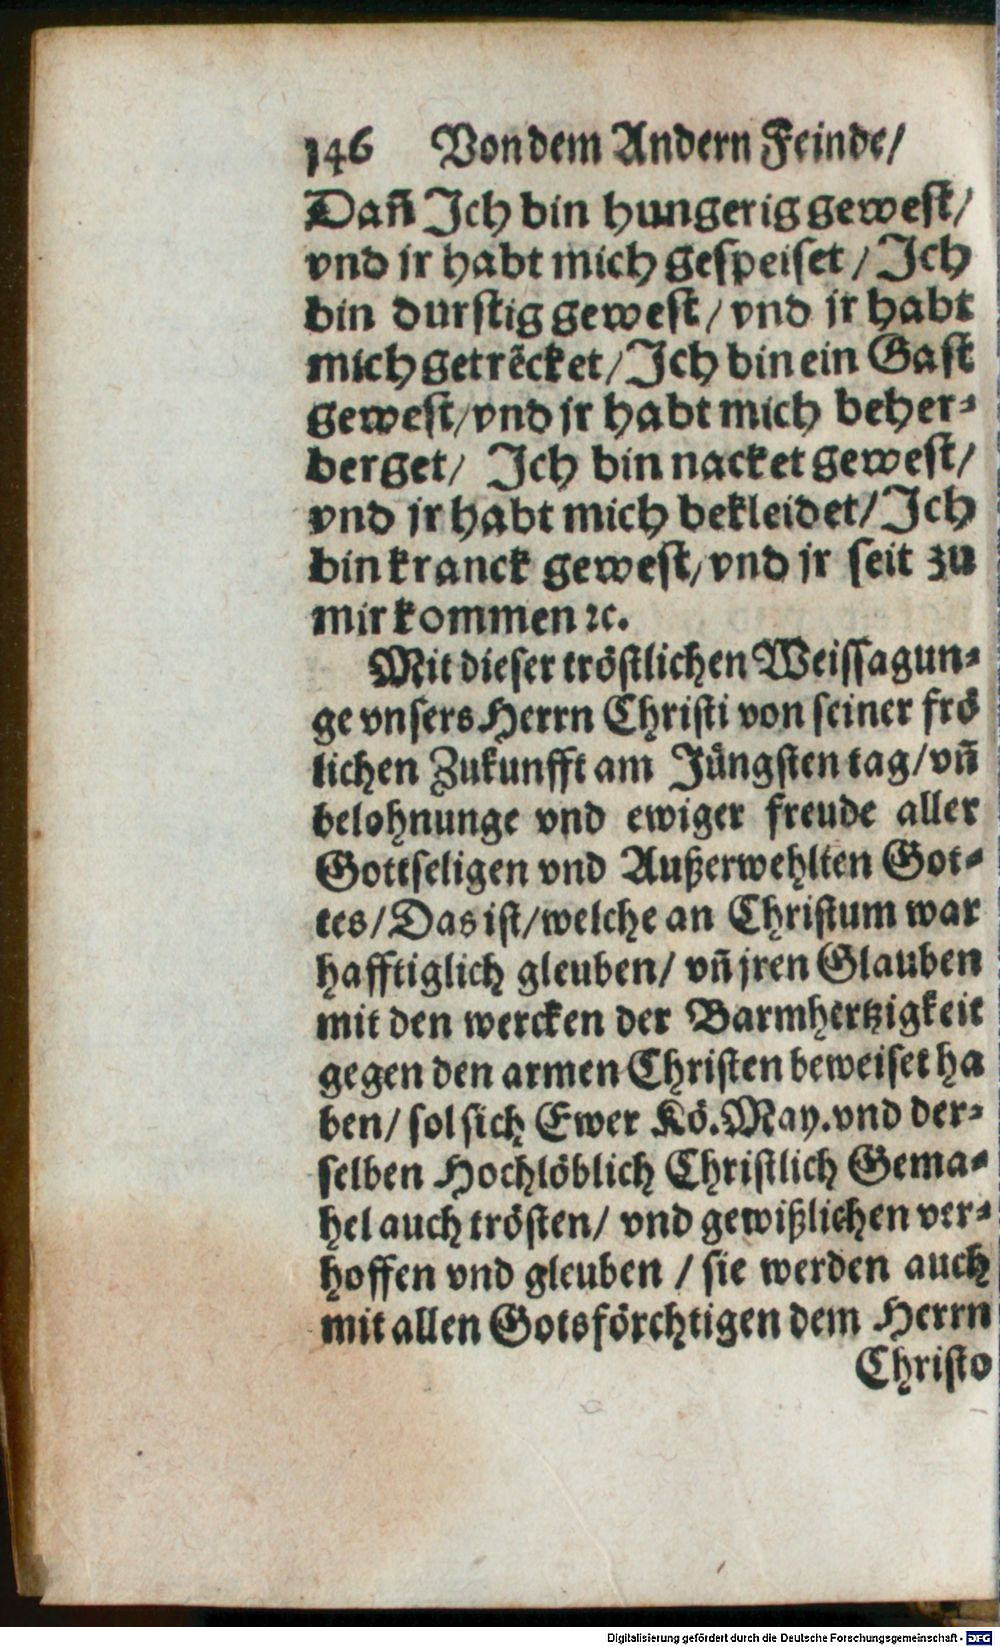 146 Von dem Andern Feinde/
Dan̄ Ich bin hungerig gewest/
vnd jr habt mich gespeiset / Ich
bin durstig gewest / vnd jr habt
mich getrēcket / Ich bin ein Gast
gewest/vnd jr habt mich beher⸗
berget/ Ich bin nacket gewest/
vnd jr habt mich bekleidet/ Ich
bin kranck gewest/vnd jr seit zu
mir kommen ꝛc.
Mit dieser tröstlichen Weissagun⸗
ge vnsers Herrn Christi von seiner frö
lichen Zukunfft am Jüngsten tag/ vn̄
belohnunge vnd ewiger freude aller
Gottseligen vnd Außerwehlten Got⸗
tes/ Das ist/welche an Christum war
hafftiglich gleuben/ vn̄ jren Glauben
mit den wercken der Barmhertzigkeit
gegen den armen Christen beweiset ha
ben/ sol sich Ewer Kö. May. vnd der⸗
selben Hochlöblich Christlich Gema⸗
hel auch trösten/ vnd gewißlichen ver⸗
hoffen vnd gleuben / sie werden auch
mit allen Gotsförchtigen dem Herrn
Christo
Digitalisierung gefördert durch die Deutsche Forschungsgemeinschaft - DFG